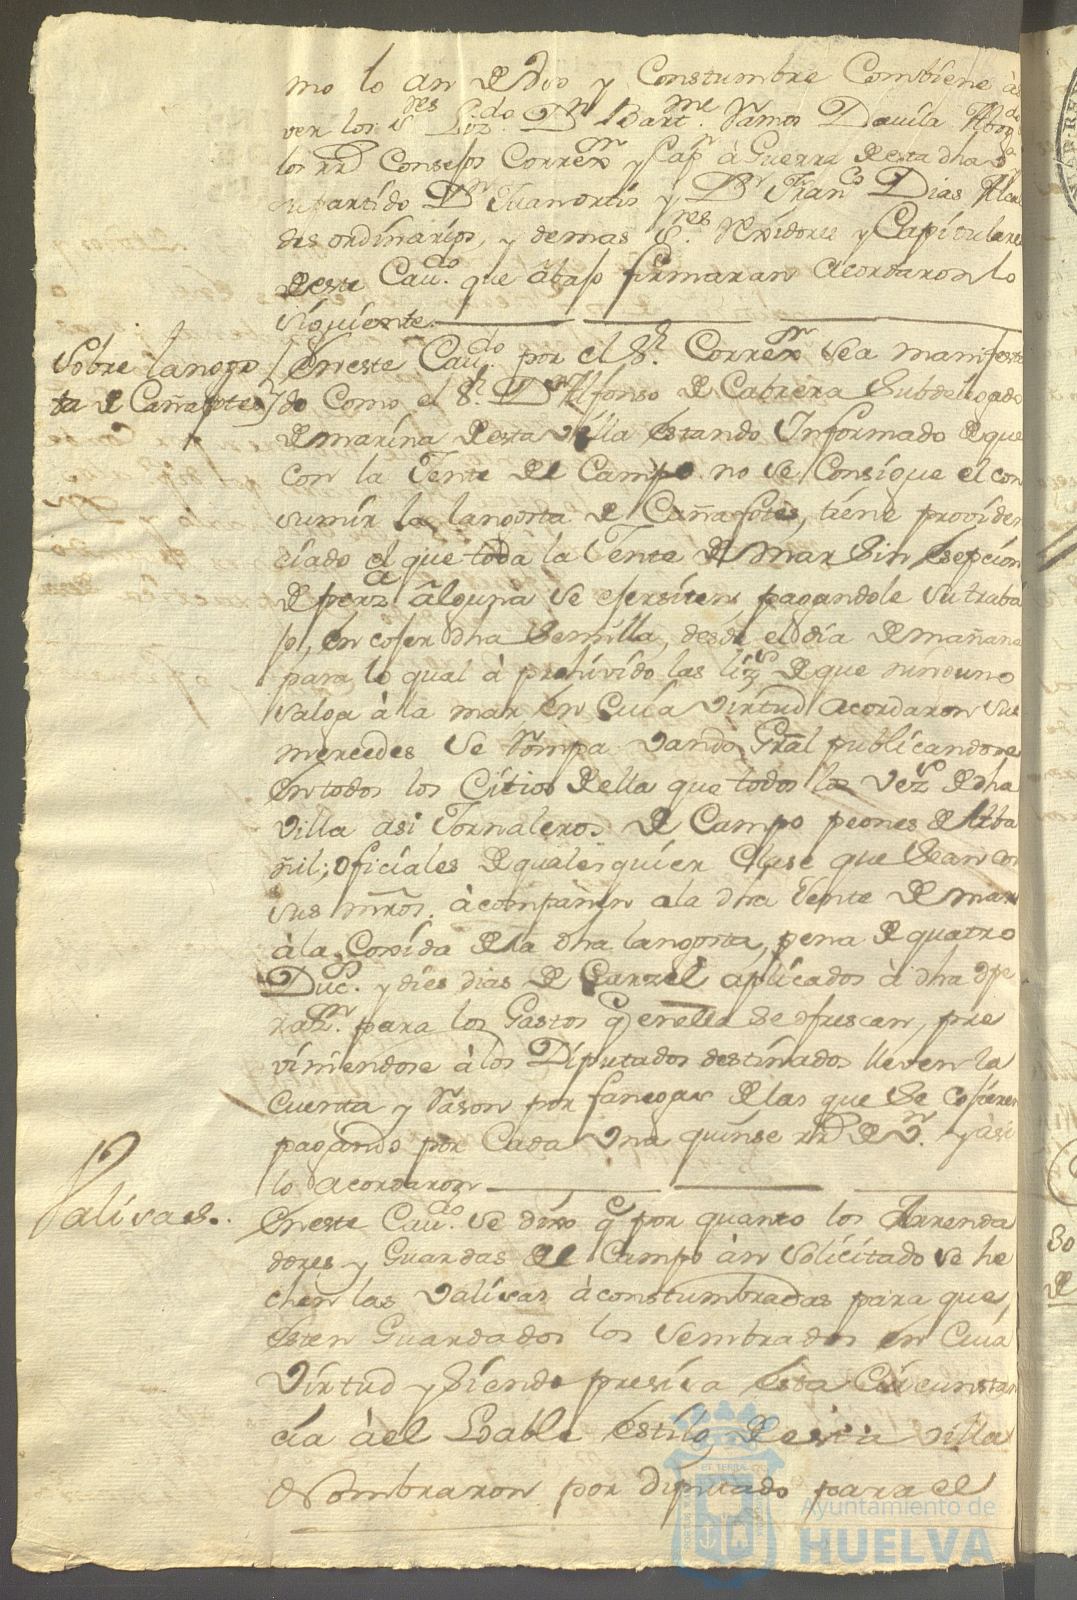 mo lo an de uso y Constumbre Combiene à sa
ver los Sres Lizdo Dn Barte Ramos Davila Abogdo de
los RR Consejos Correxr y Capn à Guerra de esta dha va
su partido Dn Juan ortis y Dn Franco Dias Alcal
des ordinarios, y demas Sres Rexidores y Capitulares
de este Cavdo que abajo firmaran acordaron lo
siguiente
Sobre langos
ta de Cañafotes
En este Cavdo por el Sr Correxr se a manifesta
do Como el Sr Dn Alfonso de Cabrera Subdelegado
de marina de esta Villa estando Informado de que
con la Jente de el Campo no se Consigue el con
sumir la langosta de Cañafotes, tiene providen
ciado el que toda la Jente de mar Sin esepcion
de perza alguna se ejersiten pagandole su traba
jo, en cojer dha Semilla, desde el dia de mañana
para lo qual à prohivido las lizs de que ninguno
salga à la mar en Cuia virtud acordaron sus
mercedes Se Rompa vando Gral publicandose
en todos los Citios de ella que todos los vezs de dha
villa asi Jornaleros de Campo peones de Alba
ñil; oficiales de qualesquier Clase que Sean con
sus mros. acompañen a la dha Jente de mar
à la Cojida de la dha langosta, pena de quatro
Ducs. y dies dias de Carzel aplicados à dha ope
razn. para los Gastos q en ella se ofrescan, pre
viniendose à los Diputados destinados lleven la
cuenta y Rason por fanegas de las que Se cojieren
pagando por Cada Una quinse rrs de vn. y asi
lo acordaron
Salivas.
En este Cavdo. se dixo q por quanto los Arrenda
dores y Guardas de el Campo àn Solicitado se he
chen las Salivas àconstumbradas para que
esten Guardados los Sembrados en Cuia
Virtud y Siendo presisa esta Circunstan
cia àel Loable estilo de esta villa
Nombraron por diputado para el
Ayuntamiento de
HUELVA